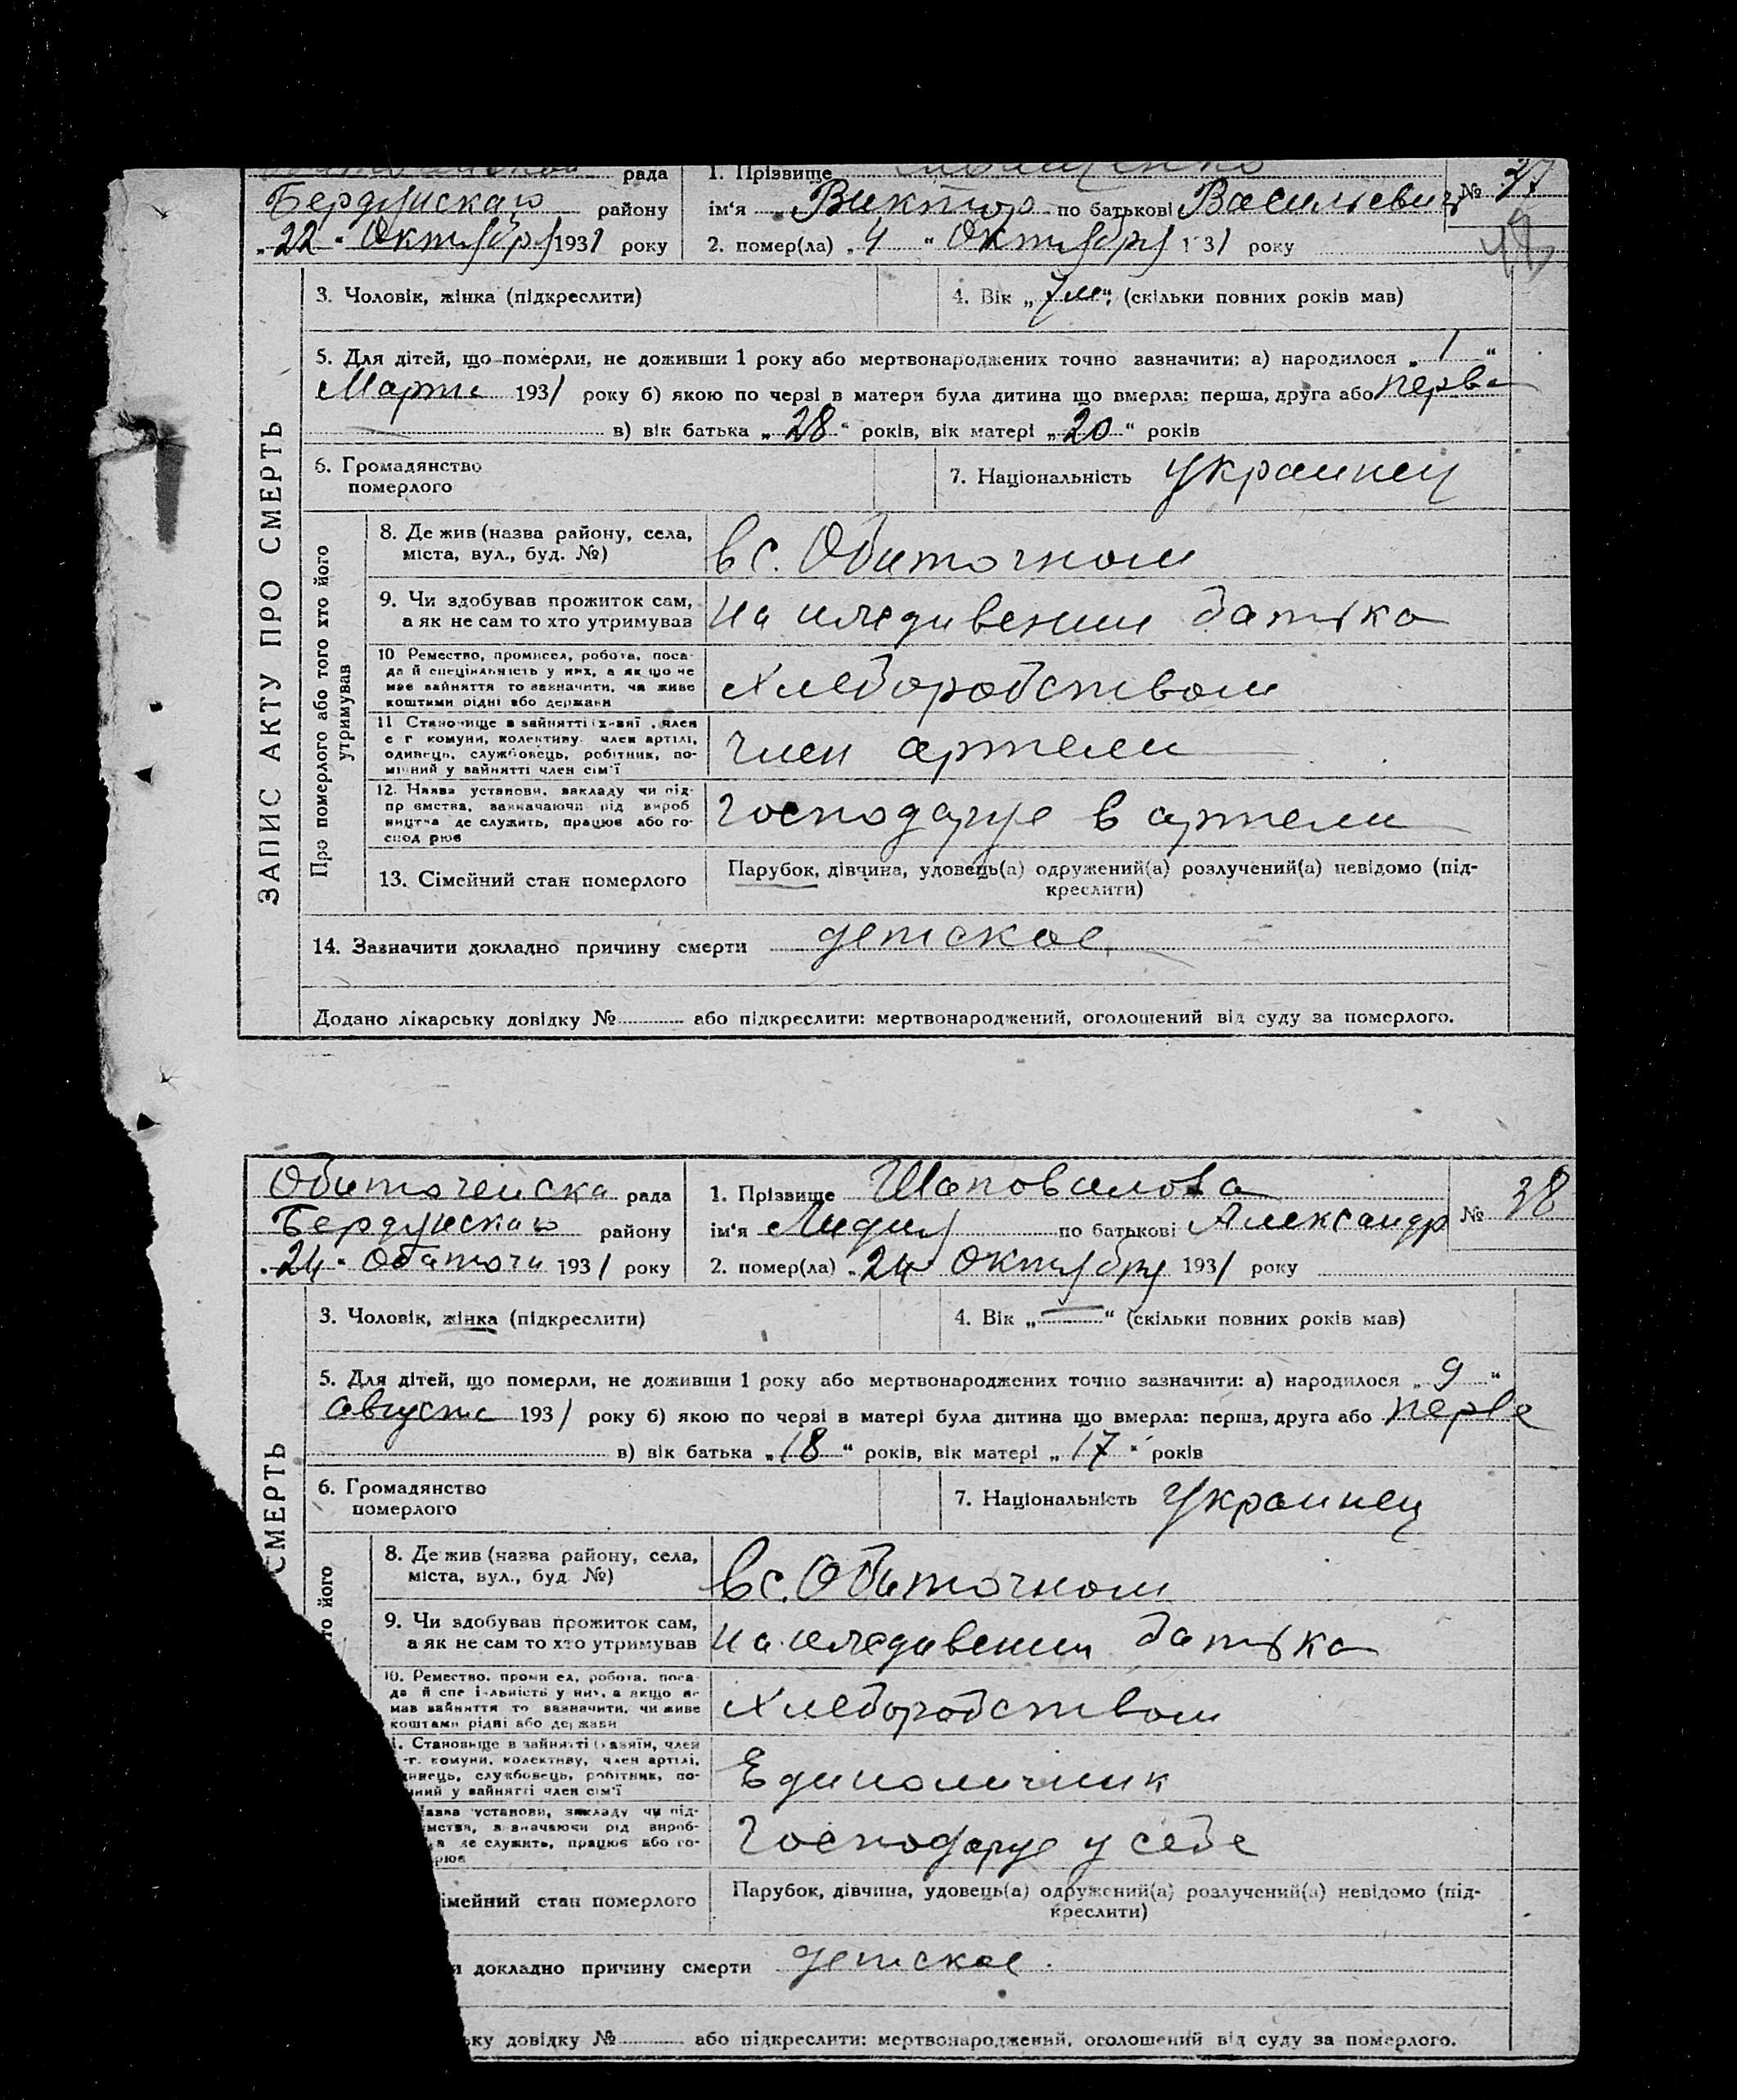 рада 1. Прізвище
Бердянскаго району ім'я Виктор по батькові Васильевич № 37
„22“ Октября 1931 року 2. помер(ла) „4“ Октября 1931 року
3. Чоловік, жінка (підкреслити) 4. Вік „7 м“ (скільки повних років мав)
5. Для дітей, що померли, не доживши 1 року або мертвонароджених точно зазначити: а) народилося „1“
Марта 1931 року б) якою по черзі в матери була дитина що вмерла: перша, друга або перва
в) вік батька „28“ років, вік матері „20“ років
6. Громадянство
померлого
7. Національність украинец
ЗАПИС АКТУ ПРО СМЕРТЬ
Про померлого або того хто його
утримував
8. Де жив (назва району, села,
міста, вул., буд. №)
в с. Обиточном
9. Чи здобував прожиток сам,
а як не сам то хто утримував
на иждивении батька
10. Ремество, промисел, робота, поса-
да й спеціяльність у них, а якщо не
має вайняття то зазначити, чи живе
коштами рідні або держави
хлеборобством
11. Становище в зайнятті член
с г комуни, колективу, член артілі,
одинець, службовець, робітник, по-
мічний у вайнятті член сім'ї
член артели
12. Назва установи, закладу чи під-
пр ємства, зазначаючи рід вироб
ництва де служить, працює або го-
спод рює
Господарує в артели
13. Сімейний стан померлого
Парубок, дівчина, удовець(а) одружений(а) розлучений(а) невідомо (під-
креслити)
14. Зазначити докладно причину смерти детское
Додано лікарську довідку № або підкреслити: мертвонароджений, оголошений від суду за померлого.
Обиточенска рада 1. Прізвище Шаповалова
Бердянскаго району ім'я Лидия по батькові Александр № 38
„24“ 1931 року 2. помер(ла) „24 Октября 1931 року
3. Чоловік, жінка (підкреслити) 4. Вік „—“ (скільки повних років мав)
5. Для дітей, що померли, не доживши 1 року або мертвонароджених точно зазначити: а) народилося „9“
августа 1931 року б) якою по черзі в матері була дитина що вмерла: перша, друга або перва
в) вік батька „18“ років, вік матері „17“ років
6. Громадянство
померлого
7. Національність Украинец
СМЕРТЬ
то його
8. Де жив (назва району, села,
міста, вул., буд. №)
в с. Обиточном
9. Чи здобував прожиток сам,
а як не сам то хто утримував
на иждивении батька
10. Ремество, проми ел, робота, поса-
да й спе і льність у них, а якщо не
мав вайняття то зазначити, чи живе
коштами рідні або держави
хлеборобством
1. Становище в зайнятті член
-г. комуни, колективу, член артілі,
динець, службовець, робітник, по-
чний у вайнятті член сім'ї
Единоличник
Назва установи, закладу чи під-
мства, зазначаючи рід вироб-
а де служить, працює або го-
рює
Господарує у себе
імейний стан померлого
Парубок, дівчина, удовець(а) одружений(а) розлучений(а) невідомо (під-
креслити)
и докладно причину смерти детское.
ьку довідку № або підкреслити: мертвонароджений, оголошений від суду за померлого.